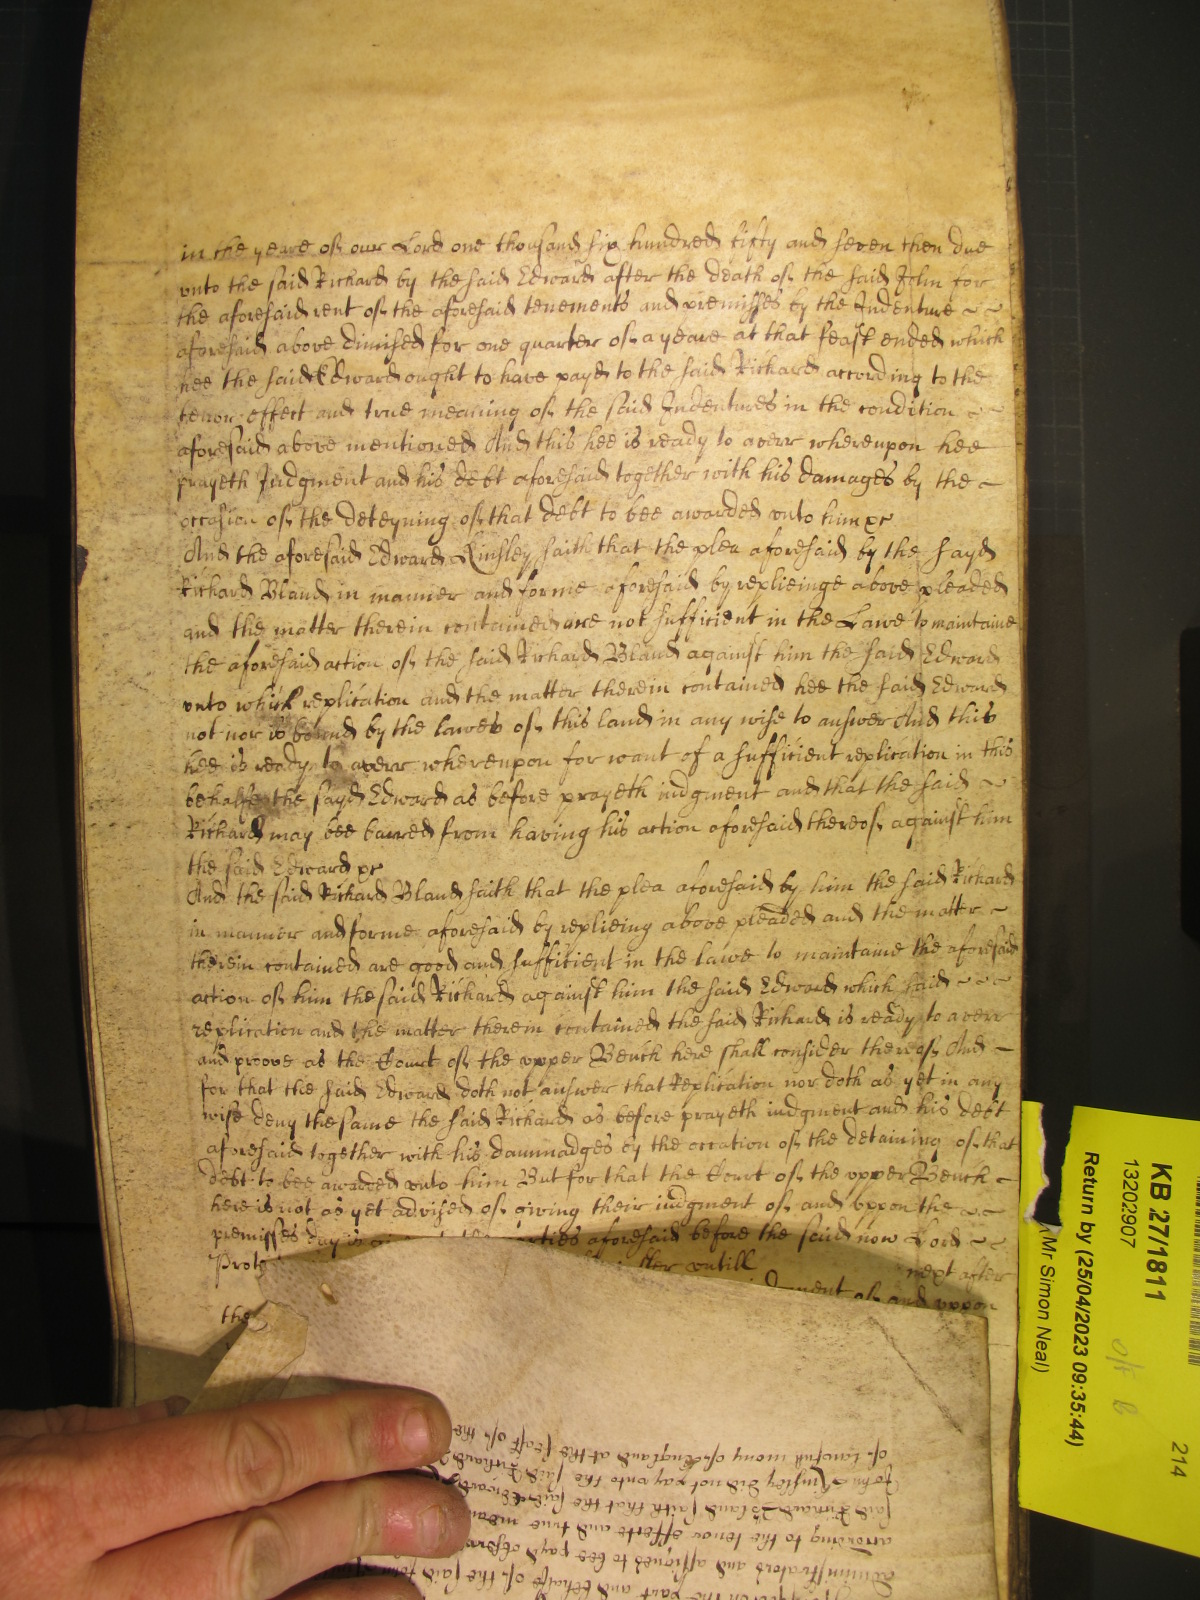 in the yeare of our Lord one thousand six hundred fifty and seven then due
unto the said Richard by the said Edward after the death of the said John for
the aforesaid rent of the aforesaid tenements and premisses by the Indenture
aforesaid above dimised for one quarter of a yeare at that feast ended which
hee the said Edward ought to have payd to the said Richard according to the
tenor effect and true meaning of the said Indentures in the condition
aforesaid above mentioned And this hee is ready to averr whereupon hee
prayeth Judgment and his debt aforesaid together with his damages by the
occasion of the deteyning of that debt to bee awarded unto him &c
And the aforesaid Edward Kinsley saith that the plea aforesaid by the sayd
Richard Bland in manner and forme aforesaid by replieinge above pleaded
and the matter therein contained are not sufficient in the Lawe to maintaine
the aforesaid action of the said Richard Bland against him the said Edward
unto which replication and the matter therein contained hee the said Edward
not nor is bound by the lawes of this land in any wise to answer And this
hee is ready to averr whereupon for want of a sufficient replication in this
behalfe the sayd Edward as before prayeth iudgment and that the said
Richard may bee barred from having his action aforesaid thereof against him
the said Edward &c
And the said Richard Bland saith that the plea aforesaid by him the said Richard
in manner and forme aforesaid by replieing above pleaded and the matter
therein contained are good and sufficient in the lawe to maintaine the aforesaid
action of him the said Richard against him the said Edward which said
replication and the matter therein contained the said Richard is ready to averr
and proove as the Court of the upper Bench here shall consider thereof And
for that the said Edward doth not answer that Replication nor doth as yet in any
wise deny the same the said Richard as before prayeth iudgment and his debt
aforesaid together with his dammadges by the occation of the detaining of that
debt to bee awarded unto him But for that the Court of the upper Bench
here is not as yet advised of giving their iudgment of and uppon the
premisses day is aforesaid before the said now Lord
untill next after
of and uppon
the
of lawfull mony of England at the feast of the
John Kinsley did not pay unto the said Richard
said Richard Bland saith that the said Edward
according to the tenor effecte and true
administrators and assignes to bee payd
the part and behalfe of the said John
KB 27/1811
13202907
Return by (25/04/2023 09:35:44)
(Mr Simon Neal)
214